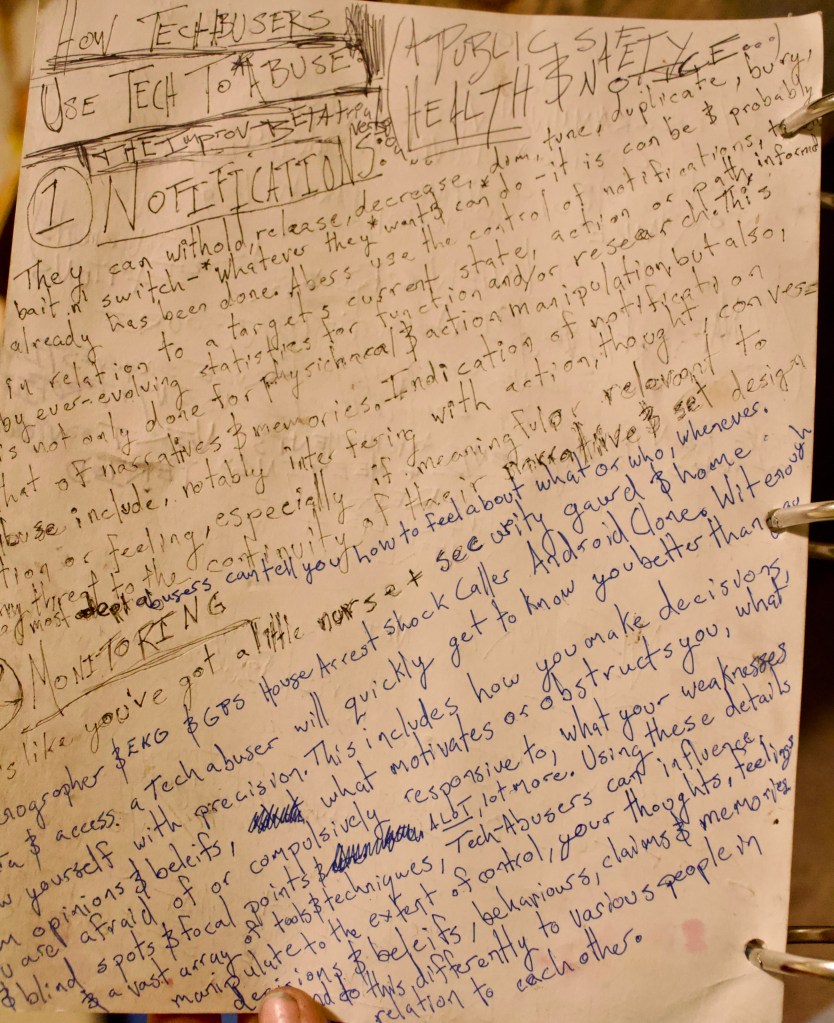 How TECHABUSERS
USE TECH To *ABUSE*
THE Improv-BETA
/A PUBLIC SAFETY
HEALTH & NOTICE...)
① NOTIFICATIONS:
They can withold, release, decrease, dim, tune, duplicate, bury,
bait n' switch-*whatever they*want & can do-it is can be & probably
already has been done. Abers use the control of notifications,
in relation to a targets current state, action or path, informed
by ever-evolving statistics for function and/or research. This
is not only done for physichacal & action manipulation, but also,
that of narratives & memories. Indication of notification
abuse include, notably interfering with action, thought, conves=
tion or feeling, especially if meaningful or relevant to
any threat to the continuity of thair narrative & set design
most adept abusers can tell you how to feel about what or who, whenever.
MONITORING
s like you've got a little nurse + security gawrd & home
nographer & EKG & GPS House Arrest Shock Caller Android Clone. Wit enough
ta & access a Tech abuser will quickly get to know you better than you
ow yourself with precision. This includes how you make decisions,
m opinions & beleifs, what motivates or obstructs you, what
u are afraid of or compulsively responsive to, what your weaknesses
& blind spots & focal points & A LOT, lot more. Using these details
& a vast array of tools & techniques, Tech-Abusers can influence,
manipulate to the extent of control, your thoughts, feelings
decisions & beleifs, behaviours, claims & memories
and do this differently to various people in
relation to each other.